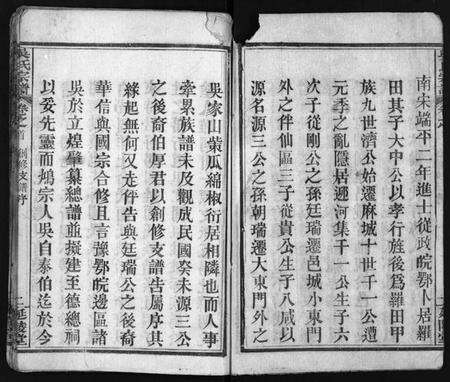 南宋端平二年進士從政皖鄂卜居羅
田其子大中公以孝行旌後爲羅田甲
族九世濟公始遷麻城十世千一公遭
元季之亂隱居迴河集千一公生子六
次子從剛公之孫廷瑞遷邑城小東門
外之伴仙區三子從貴公生子八咸以
源名源三公之孫朝瑞遷大東門外之
吳家山紫瓜綿椒衍居相隣也而人事
牽累族譜未及觀成民國癸未源三公
之後裔伯厚君以創修支譜告屬序其
緣起無何又走伴告與廷瑞公之後裔
華信與國宗合修且言豫鄂皖邊區諸
吳於立煌肇纂總譜並擬建至德總祠
以妥先靈而鳩宗人吳自泰伯迄於今
吳氏宗譜
卷之首
創修支譜序
二
延陵堂